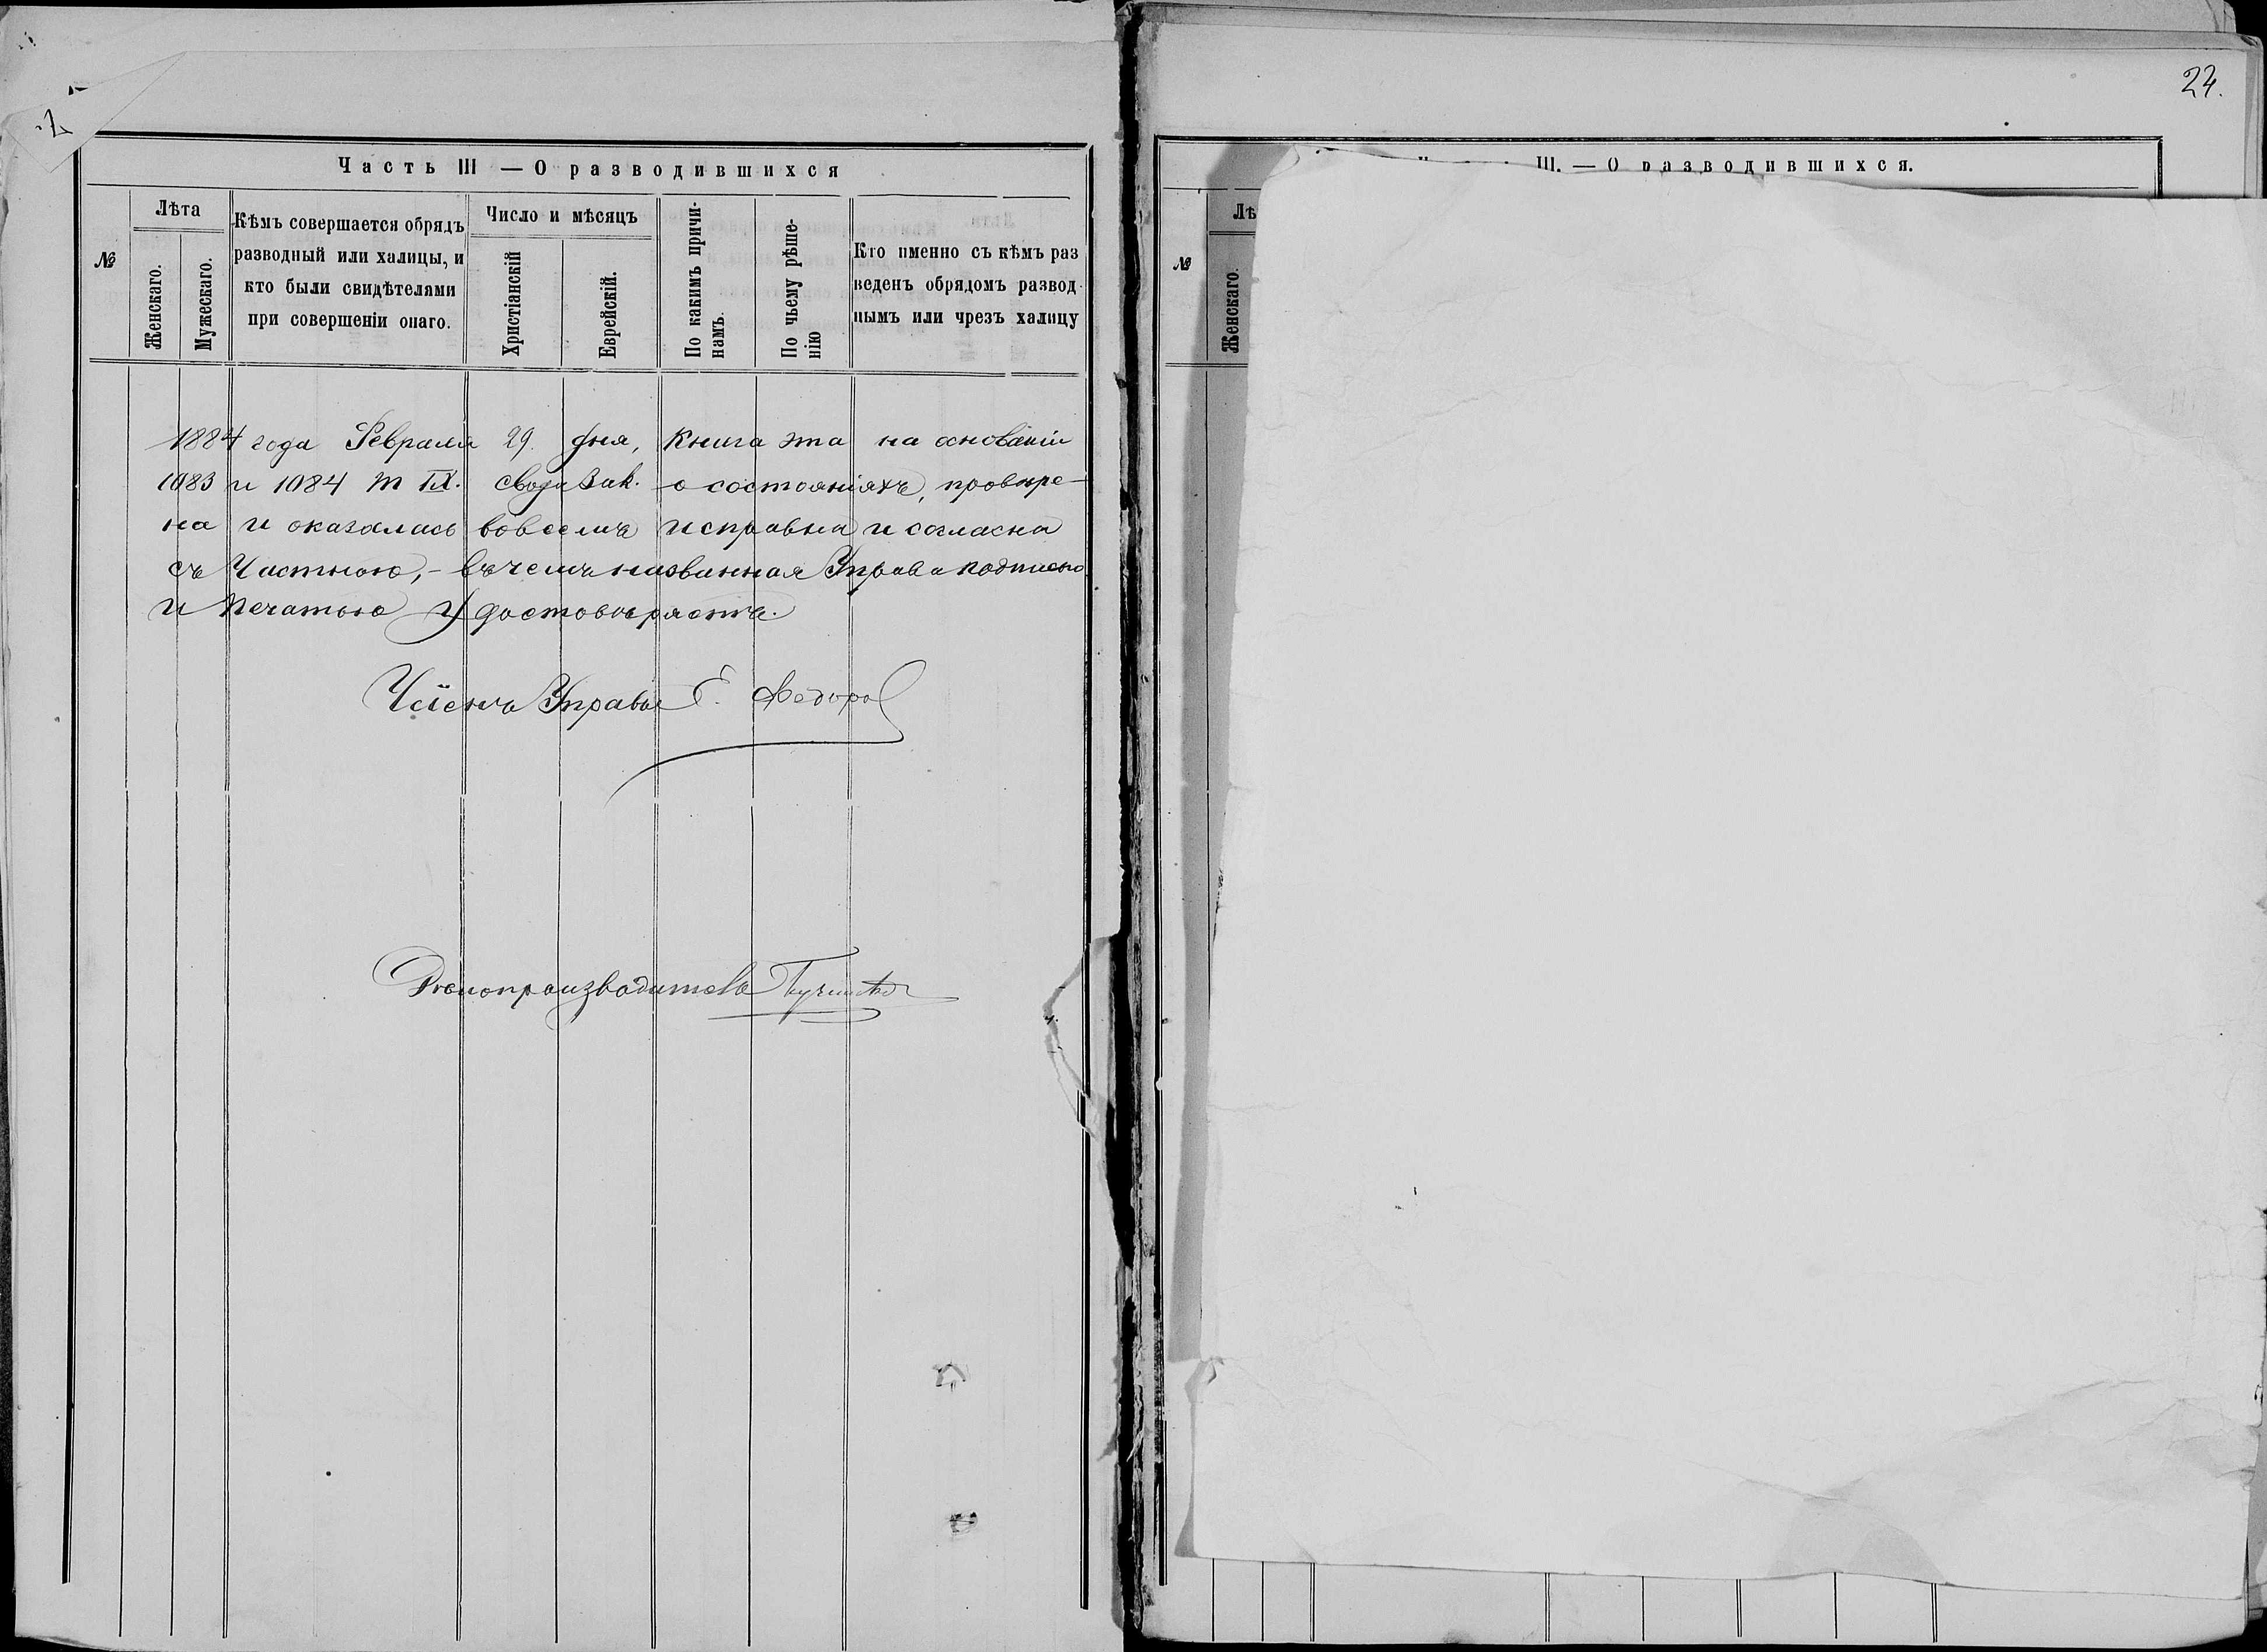 Часть III — О разводившихся
№
Лѣта
Женскаго.
Мужескаго.
Кѣмъ совершается обрядъ
разводный или халицы, и
кто были свидѣтелями
при совершеніи онаго.
Число и мѣсяцъ
Христіанскій
Еврейскій.
По какимъ причи-
намъ.
По чьему рѣше-
нію
Кто именно съ кѣмъ раз
веденъ обрядомъ развод
нымъ или чрезъ халицу
1884 года Февраля 29. дня, книга эта на основаніи
1083 и 1084 т IX. свода Зак. о состояніяхъ, провѣре-
на и оказалась вовсемъ исправна и согласна
съ Частною, - въчемъ Управа подписью
и печатью Удостовѣряетъ.
Членъ Управы Е. Федоров
Дѣлопроизводитель
24.
III. — О разводившихся.
№
Лѣ
Женскаго.